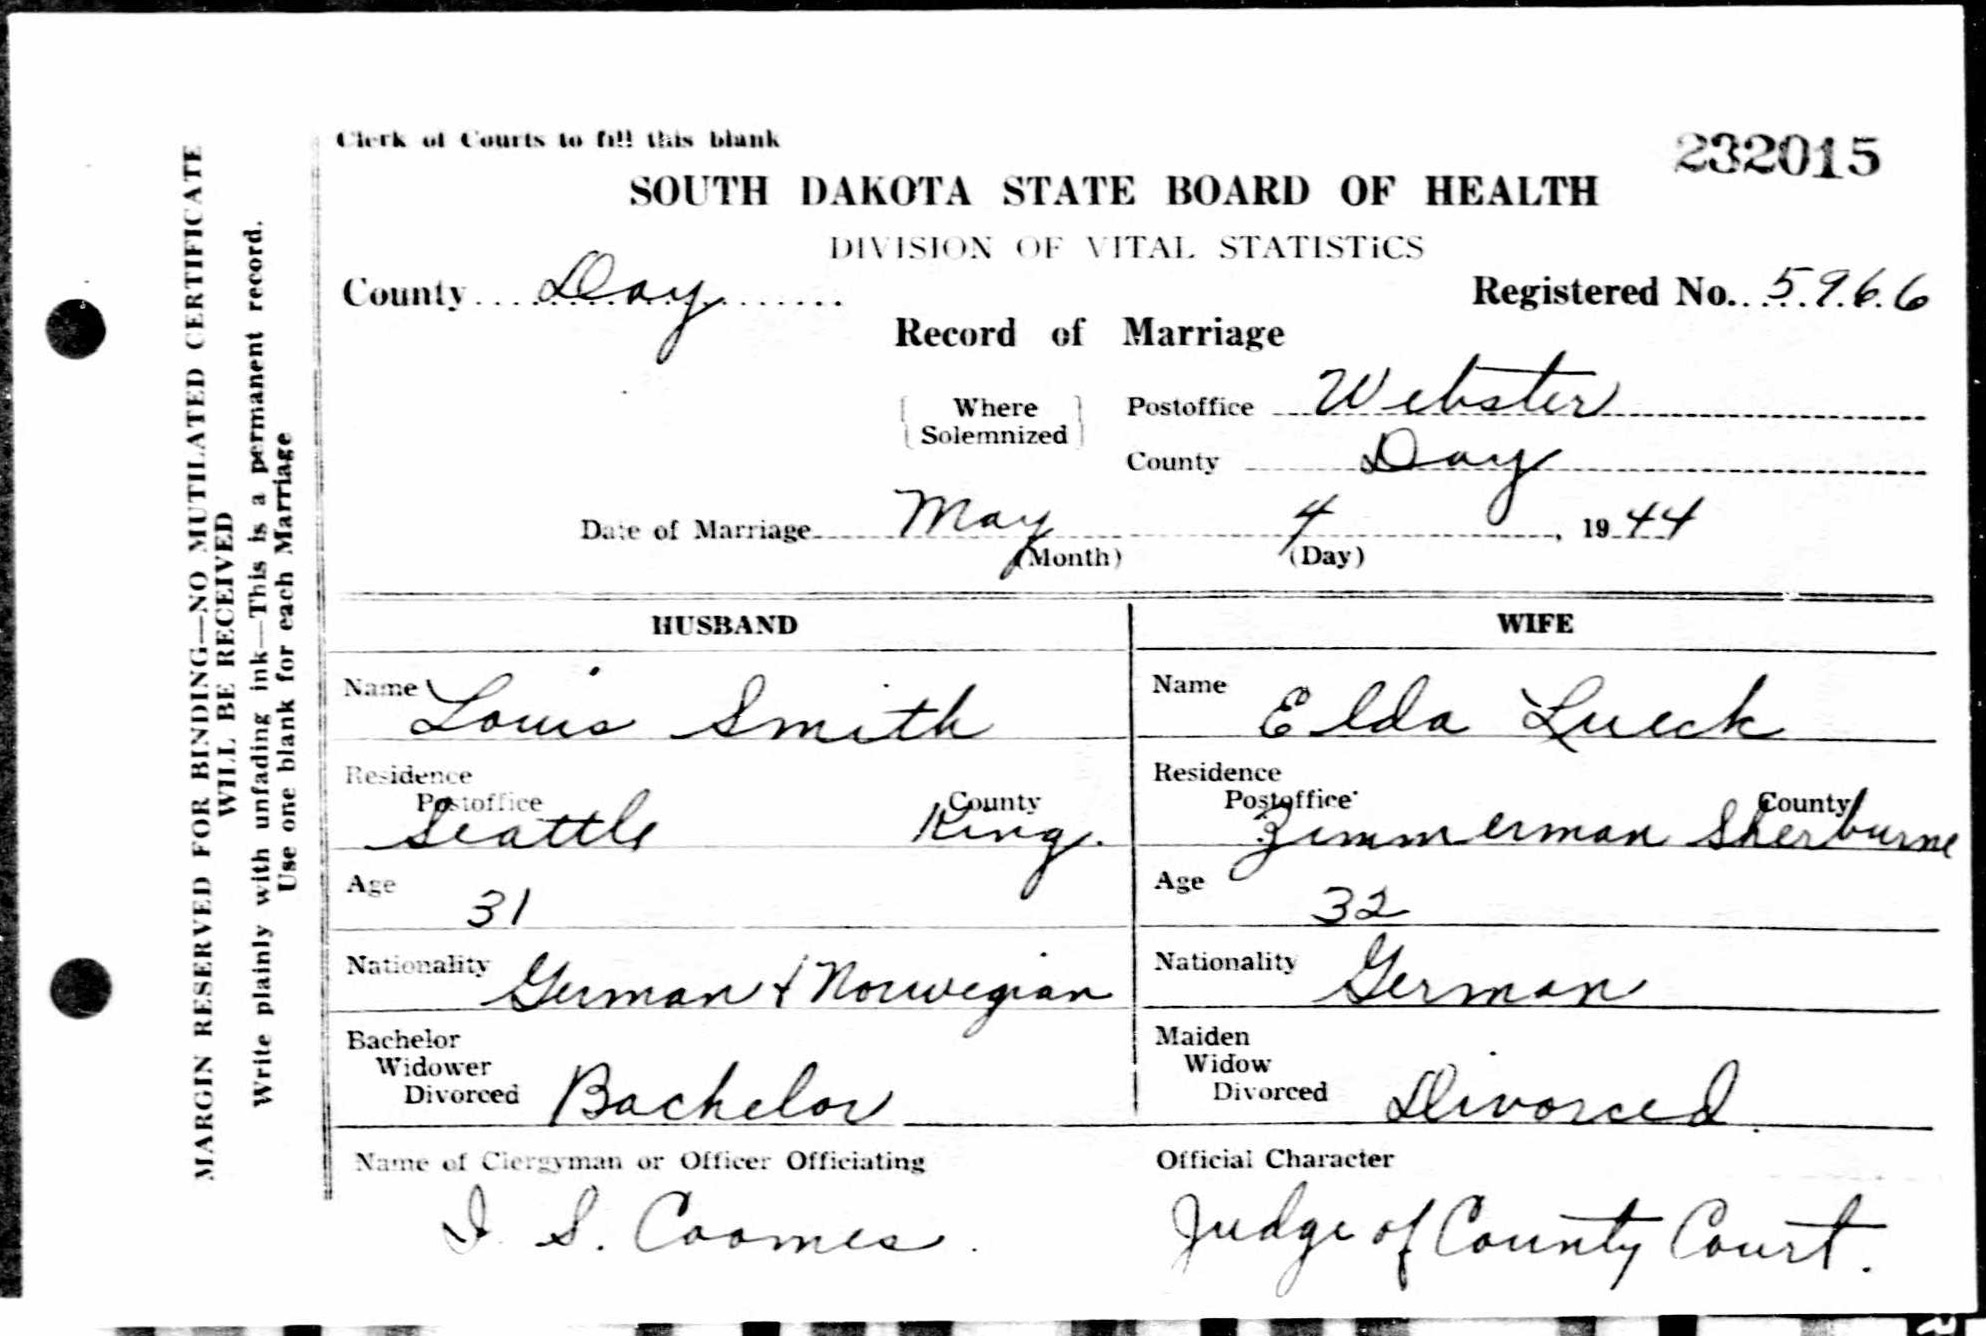 MARGIN RESERVED FOR BINDING—NO MUTILATED CERTIFICATE
WILL BE RECEIVED
Write plainly with unfading ink—This is a permanent record.
Use one blank for each Marriage
Clerk of Courts to fill this blank
232015
SOUTH DAKOTA STATE BOARD OF HEALTH
DIVISION OF VITAL STATISTICS
County Day Registered No. 5966
Record of Marriage
Where Solemnized Postoffice Webster
County Day
Date of Marriage May 4, 1944
(Month) (Day)
HUSBAND WIFE
Name Louis Smith Name Elda Lueck
Residence Residence
Postoffice County Postoffice County
Seattle King. Zimmerman Sherburne
Age 31 Age 32
Nationality German & Norwegian Nationality German
Bachelor Maiden
Widower Widow
Divorced Bachelor Divorced Divorced
Name of Clergyman or Officer Officiating Official Character
I. S. Coomes. Judge of County Court.